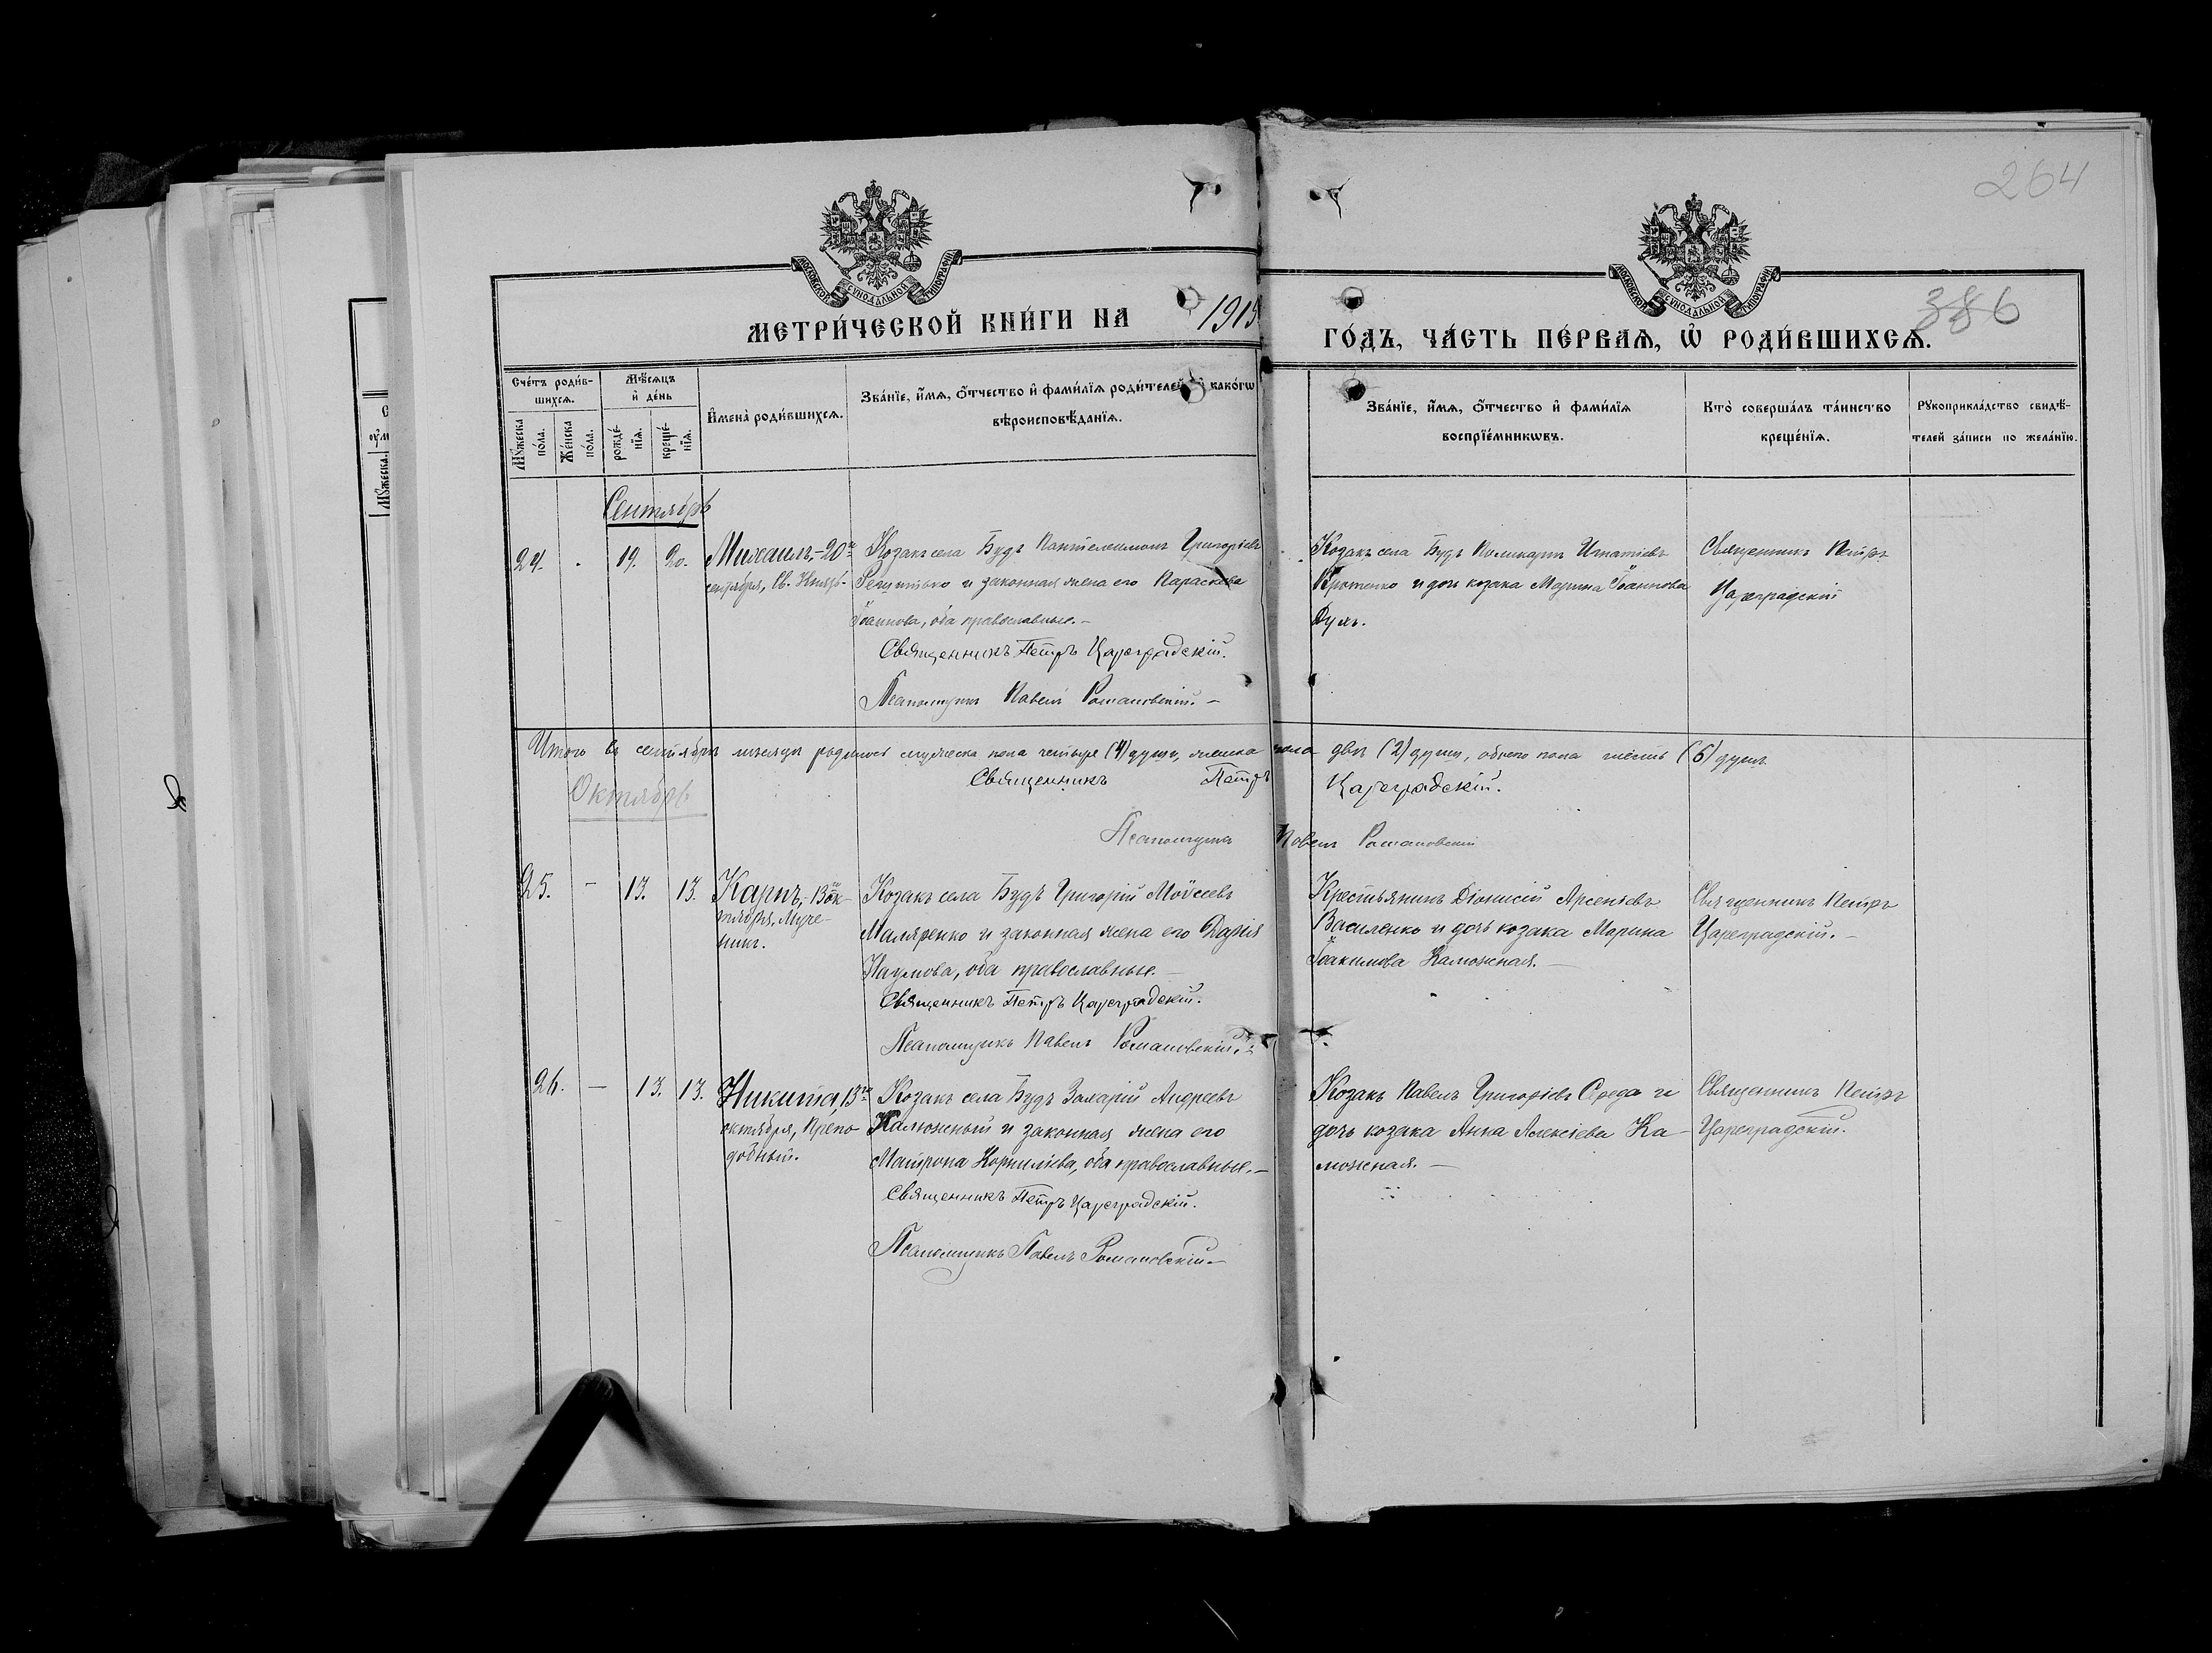 264
МОСКОВСКОЙ СѴНОДАЛЬНОЙ ТИПОГРАФІИ
МОСКОВСКОЙ СѴНОДАЛЬНОЙ ТИПОГРАФІИ
386
МЕТРИ́ЧЕСКОЙ КНИ́ГИ НА 1915 ГО́ДЪ, ЧА́СТЬ ПЕ́РВАѦ, Ѡ҆ РОДИ́ВШИХСѦ.
Сче́тъ роди́в-
шихсѧ.
Мꙋ́жеска
по́ла.
Же́нска
по́ла.
Мѣ́сѧцъ
и҆ де́нь
рожде́-
нїѧ.
креще́-
нїѧ.
И҆мена̀ роди́вшихсѧ.
Зва́нїе, и҆́мѧ, ѻ҆́тчество и҆ фами́лїѧ роди́телей и҆ како́гѡ
вѣроисповѣ́данїѧ.
Зва́нїе, и҆́мѧ, ѻ҆́тчество и҆ фами́лїѧ
воспрїе́мникѡвъ.
Кто̀ соверша́лъ та́инство
креще́нїѧ.
Рꙋкоприкла́дство свидѣ́-
телей за́писи по жела́нїю.
Сентябрь
24. - 19. 20.
Михаилъ,-20го
сентября, Св. Князь-
Козакъ села Будъ Пантелеимонъ Григоріевъ
и законная жена его Параскева
Іоаннова, оба православные.-
Священникъ Петръ Цареградскій.
Псаломщикъ Павелъ Романовскій.-
Козакъ села Будъ Поликарпъ Игнатіевъ
Кротенко и дочь козака Марина Іоаннова
Священникъ Петръ
Цареградскій
Итого въ сентябрѣ мѣсяцѣ родилось мужеска пола четыре (4) душъ, женска пола двѣ (2) души, обоего пола шесть (6) душъ.
Священникъ Петръ Цареградскій.
Октябрь
Псаломщикъ Павелъ Романовскій
25. - 13. 13.
Карпъ,-13ок-
тября, Муче-
никъ.
Козакъ села Будъ Григорій Моѵсеевъ
Маляренко и законная жена его Дарія
Наумова, оба православные.-
Священникъ Петръ Цареградскій.
Псаломщикъ Павелъ Романовскій.-
Крестьянинъ Діонисій Арсеніевъ
Василенко и дочь козака Марина
Іоакимова Калюжная.-
Священникъ Петръ
Цареградскій.-
26. - 13. 13.
Никита, 13го
октября, Препо-
добный.
Козакъ села Будъ Захарій Андреевъ
Калюжный и законная жена его
Матрона Корниліева, оба православные.-
Священникъ Петръ Цареградскій.
Псаломщикъ Павелъ Романовскій-
Козакъ Павелъ Григоріевъ Середа и
дочь козака Анна Алексіева Ка-
люжная.-
Священникъ Петръ
Цареградскій.